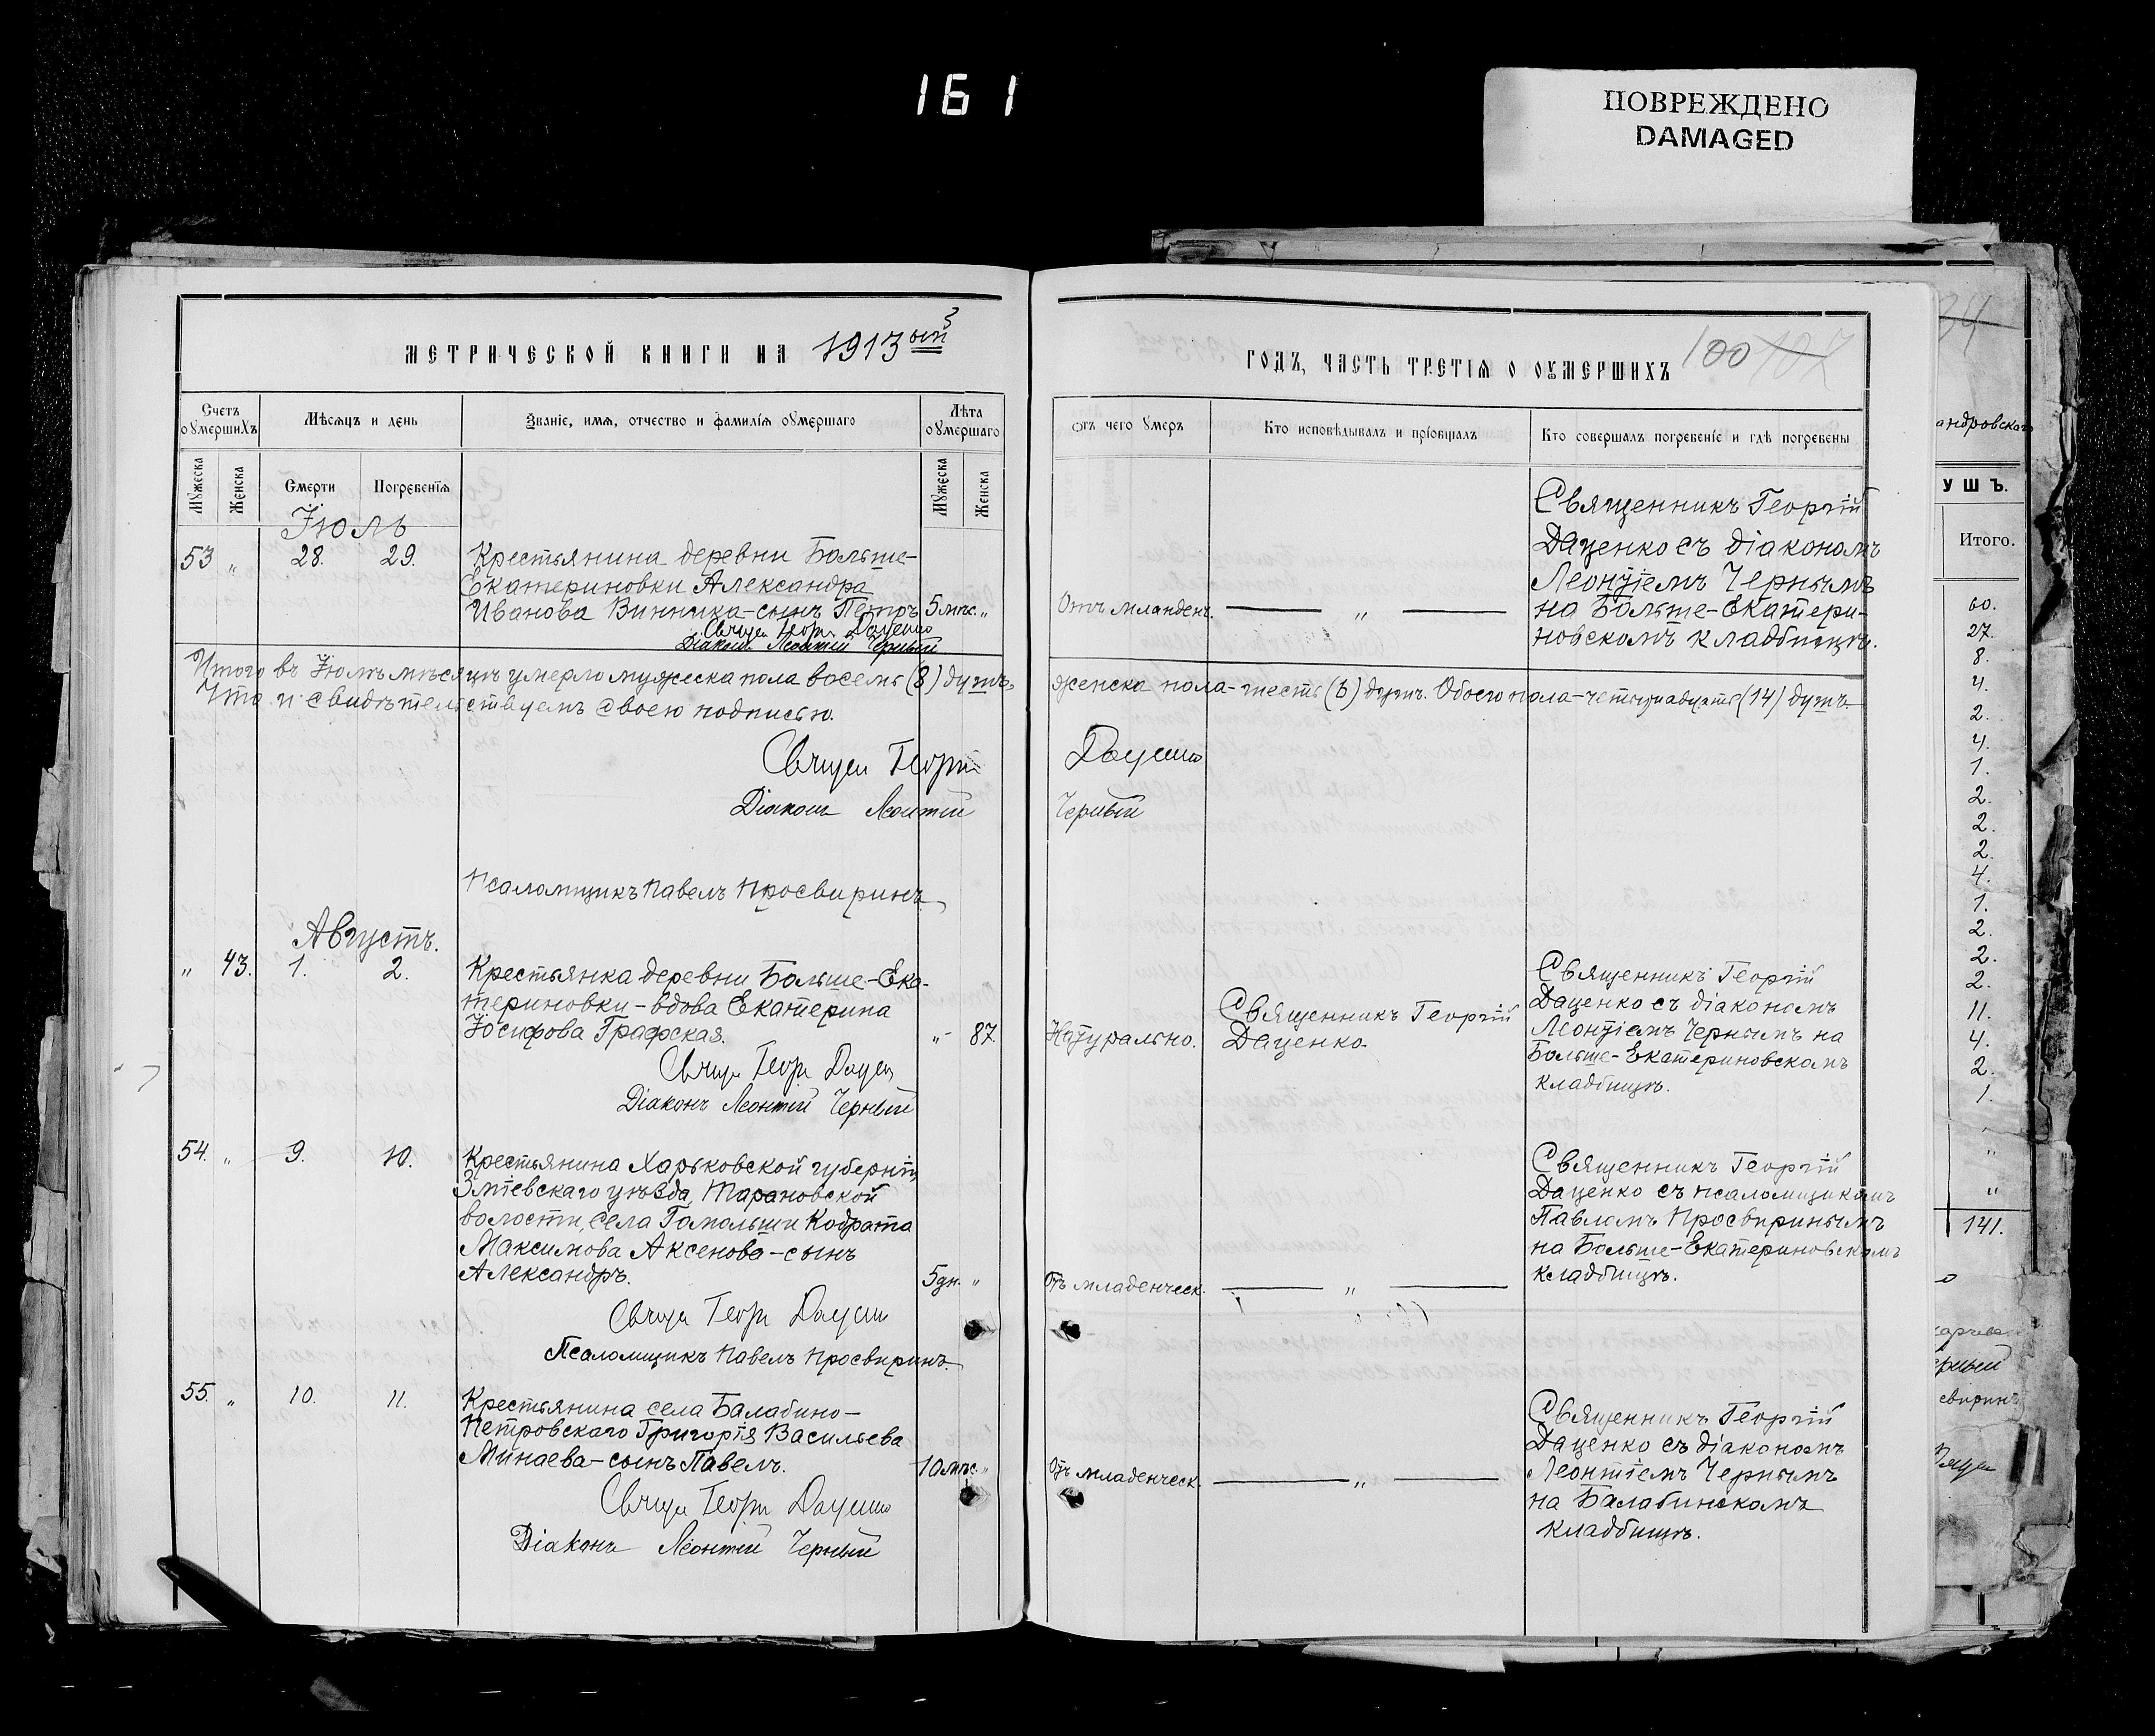 161
ПОВРЕЖДЕНО
DAMAGED
МЕТРИЧЕСКОЙ КНИГИ НА 1913ый
3
Счетъ оумершихъ
Мѣсяцъ и день
Званіе, имя, отчество и фамилія оумершаго
Лѣта оумершаго
Мужеска
Женска
Смерти
Погребенія
Мужеска
Женска
Іюль
53 „ 28. 29. Крестьянина деревни Больше-
Екатериновки Александра
Иванова Винника-сынъ Петръ 5 мѣс. „
Свящ Георг Даценко
Діаконъ Леонтій Черный
Итого въ Іюлѣ мѣсяцѣ умерло мужеска пола восемь (8) душъ,
Что и свидѣтельствуемъ своею подписью.
Священ Георгій
Діаконъ Леонтій
Псаломщикъ Павелъ Просвиринъ
Августъ.
„ 43. 1. 2. Крестьянка деревни Больше-Ека-
териновки-вдова Екатерина
Іосифова Графская. „ 87.
Свящ Георг Дацен
Діаконъ Леонтій Черный
54. „ 9. 10. Крестьянина Харьковской губерніи,
Зміевскаго уѣзда, Тарановской
волости, села Гомольши Кодрата
Максимова Аксенова-сынъ
Александръ. 5 дн. „
Свящ Георг Даценко
Псаломщикъ Павелъ Просвиринъ.
55. „ 10. 11. Крестьянина села Балабино-
Петровскаго Григорія Васильева
Минаева-сынъ Павелъ. 10 мѣс. „
Свящ Георг Даценко
Діаконъ Леонтій Черный
ГОДЪ, ЧАСТЬ ТРЕТІЯ О ОУМЕРШИХЪ 100 107
Отъ чего умеръ
Кто исповѣдывалъ и пріобщалъ
Кто совершалъ погребеніе и гдѣ погребены
Священникъ Георгій
Даценко съ діакономъ
Леонтіемъ Чернымъ
Отъ младен. „ на Больше-Екатери-
новскомъ кладбищѣ.
женска пола-шесть (6) душъ. Обоего пола-четырнадцать (14) душъ.
Даценко
Черный
Священникъ Георгій
Даценко съ діакономъ
Леонтіемъ Чернымъ на
Больше-Екатериновскомъ
кладбищѣ.
Натурально.
Священникъ Георгій
Даценко.
Священникъ Георгій
Даценко съ псаломщикомъ
Павломъ Просвиринымъ
на Больше-Екатериновскомъ
кладбищѣ.
Отъ младенческ. „
Священникъ Георгій
Даценко съ діакономъ
Леонтіемъ Чернымъ
на Балабинскомъ
кладбищѣ.
Отъ младенческ. „
34
андровскаго
УШЪ.
Итого.
60.
27.
8.
4.
2.
4.
1.
2.
2.
2.
4.
1.
2.
2.
2.
11.
4.
2.
1.
„
„
„
141.
ерный
свиринъ